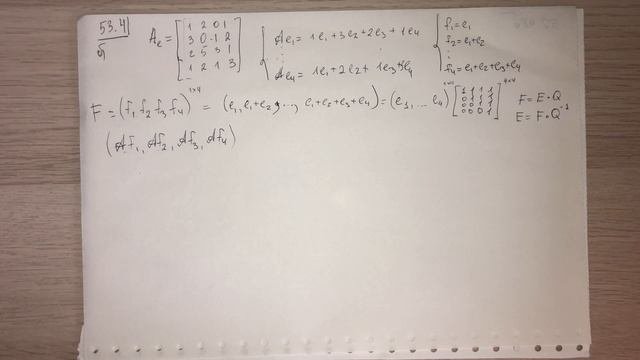 53.4
б)
A_e = [1 2 0 1
3 0 -1 2
2 5 3 1
1 2 1 3]
{ Ae₁ = 1e₁+3e₂+2e₃+1e₄
⋮
Ae₄ = 1e₁+2e₂+1e₃+3e₄
{ f₁=e₁
f₂=e₁+e₂
⋮
f₄=e₁+e₂+e₃+e₄
1×4
F = (f₁ f₂ f₃ f₄) = (e₁, e₁+e₂, ..., e₁+e₂+e₃+e₄) = (e₁, ... e₄) [1 1 1 1
0 1 1 1
0 0 1 1
0 0 0 1] 4×4
F = E·Q
E = F·Q⁻¹
(Af₁, Af₂, Af₃, Af₄)